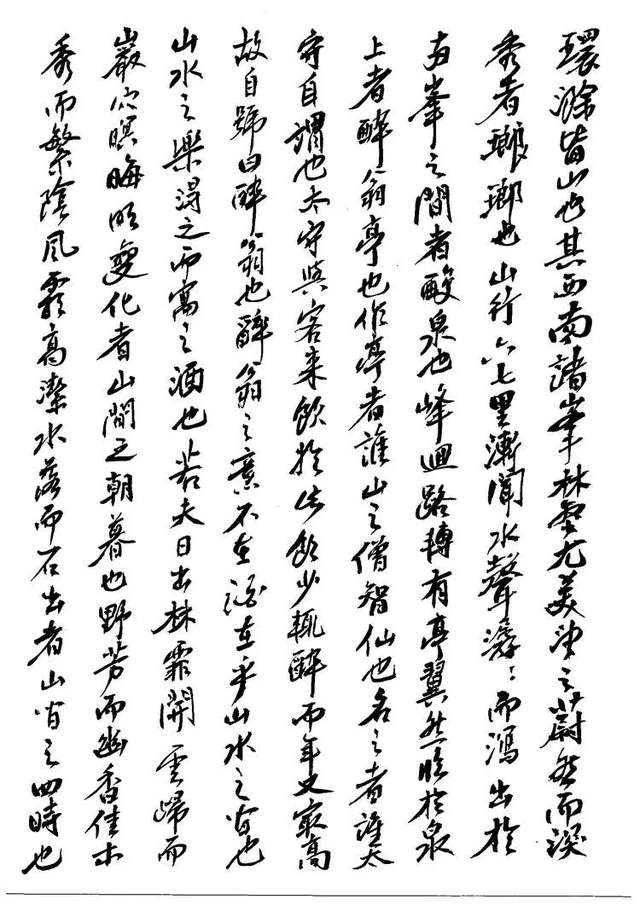 環滁皆山也其西南諸峯林壑尤美望之蔚然而深
秀者瑯瑘也山行六七里漸聞水聲潺〻而瀉出於
兩峯之間者釀泉也峰迴路轉有亭翼然臨於泉
上者醉翁亭也作亭者誰山之僧智仙也名之者誰太
守自謂也太守與客來飲於此飲少輒醉而年又最高
故自號曰醉翁也醉翁之意不在酒在乎山水之間也
山水之樂得之而寓之酒也若夫日出林霏開雲歸而
巖穴暝晦明變化者山間之朝暮也野芳而幽香佳木
秀而繁陰風霜高潔水落而石出者山間之四時也